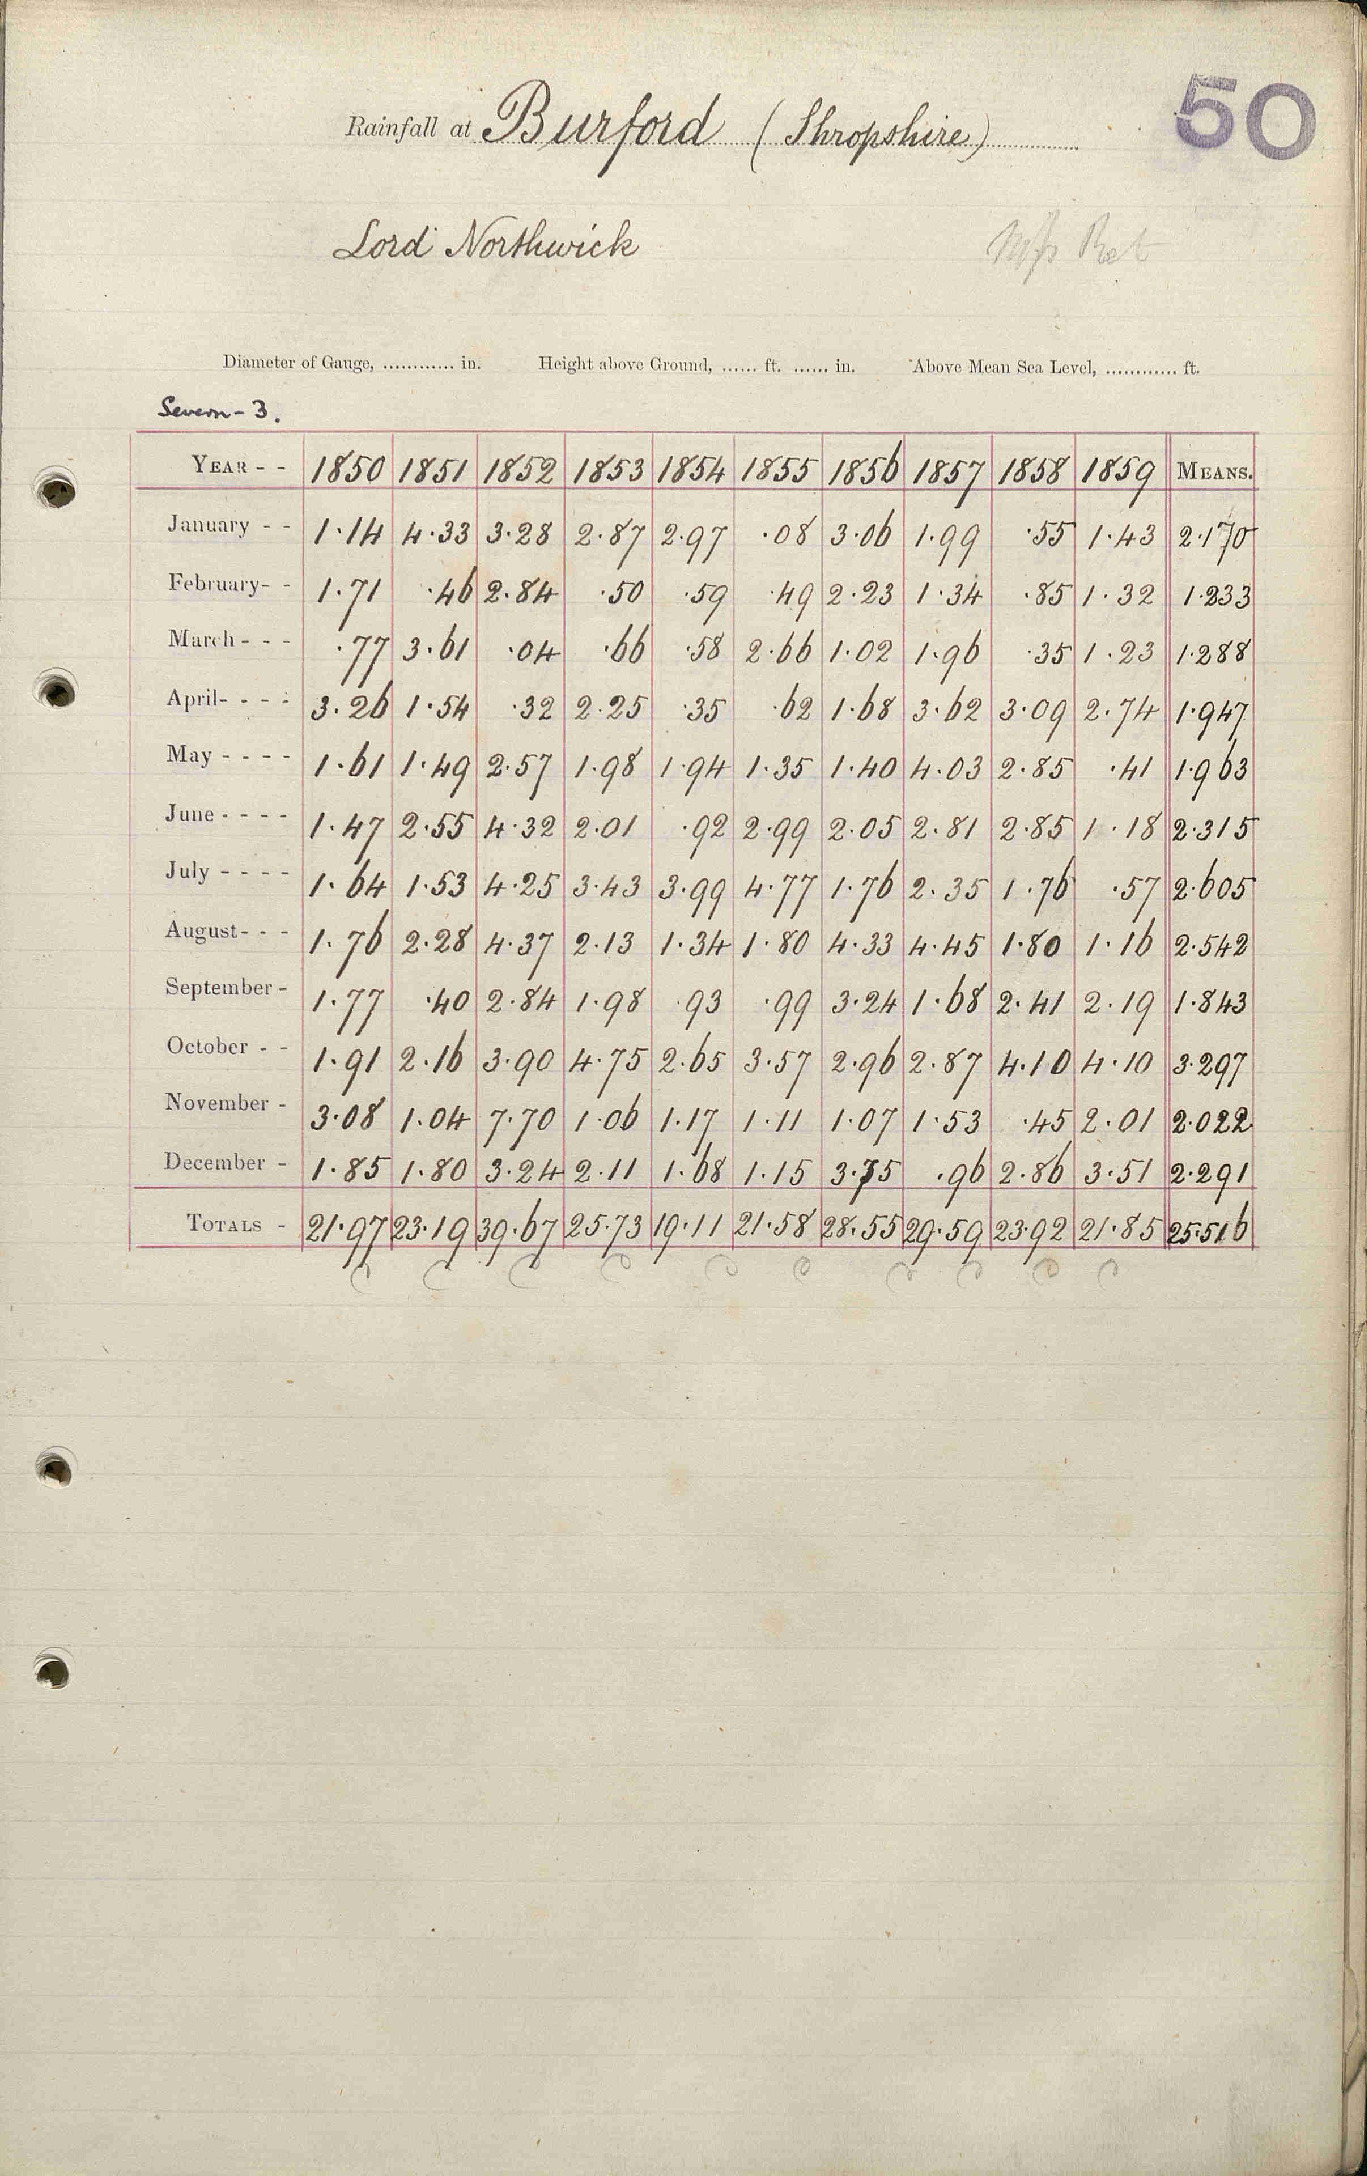 50
Rainfall at Burford (Shropshire)
Lord Northwick
Diameter of Gauge, ............ in. Height above Ground, ...... ft. ...... in. Above Mean Sea Level, ............ ft.
Severn - 3.
YEAR - - 1850 1851 1852 1853 1854 1855 1856 1857 1858 1859 MEANS.
January - - 1.14 4.33 3.28 2.87 2.97 .08 3.06 1.99 .55 1.43 2.170
February - - 1.71 .46 2.84 .50 .59 .49 2.23 1.34 .85 1.32 1.233
March - - - .77 3.61 .04 .66 .58 2.66 1.02 1.96 .35 1.23 1.288
April - - - - 3.26 1.54 .32 2.25 .35 .62 1.68 3.62 3.09 2.74 1.947
May - - - - 1.61 1.49 2.57 1.98 1.94 1.35 1.40 4.03 2.85 .41 1.963
June - - - - 1.47 2.55 4.32 2.01 .92 2.99 2.05 2.81 2.85 1.18 2.315
July - - - - 1.64 1.53 4.25 3.43 3.99 4.77 1.76 2.35 1.76 .57 2.605
August - - - 1.76 2.28 4.37 2.13 1.34 1.80 4.33 4.45 1.80 1.16 2.542
September - 1.77 .40 2.84 1.98 .93 .99 3.24 1.68 2.41 2.19 1.843
October - - 1.91 2.16 3.90 4.75 2.65 3.57 2.96 2.87 4.10 4.10 3.297
November - 3.08 1.04 7.70 1.06 1.17 1.11 1.07 1.53 .45 2.01 2.022
December - 1.85 1.80 3.24 2.11 1.68 1.15 3.75 .96 2.86 3.51 2.291
TOTALS - 21.97 23.19 39.67 25.73 19.11 21.58 28.55 29.59 23.92 21.85 25.516